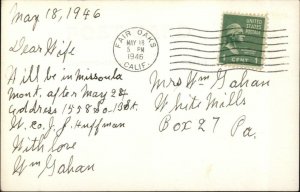 May 18, 1946
Dear Wife
I will be in Missoula
Mont. after May 24
address 1458 So. 1st St.
W. co. J. J. Huffman
With love
Wm Gahan
FAIR OAKS
MAY 18
5 PM
1946
CALIF.
UNITED STATES
POSTAGE
1 CENT 1
Mrs Wm Gahan
White Mills
Box 27 Pa.